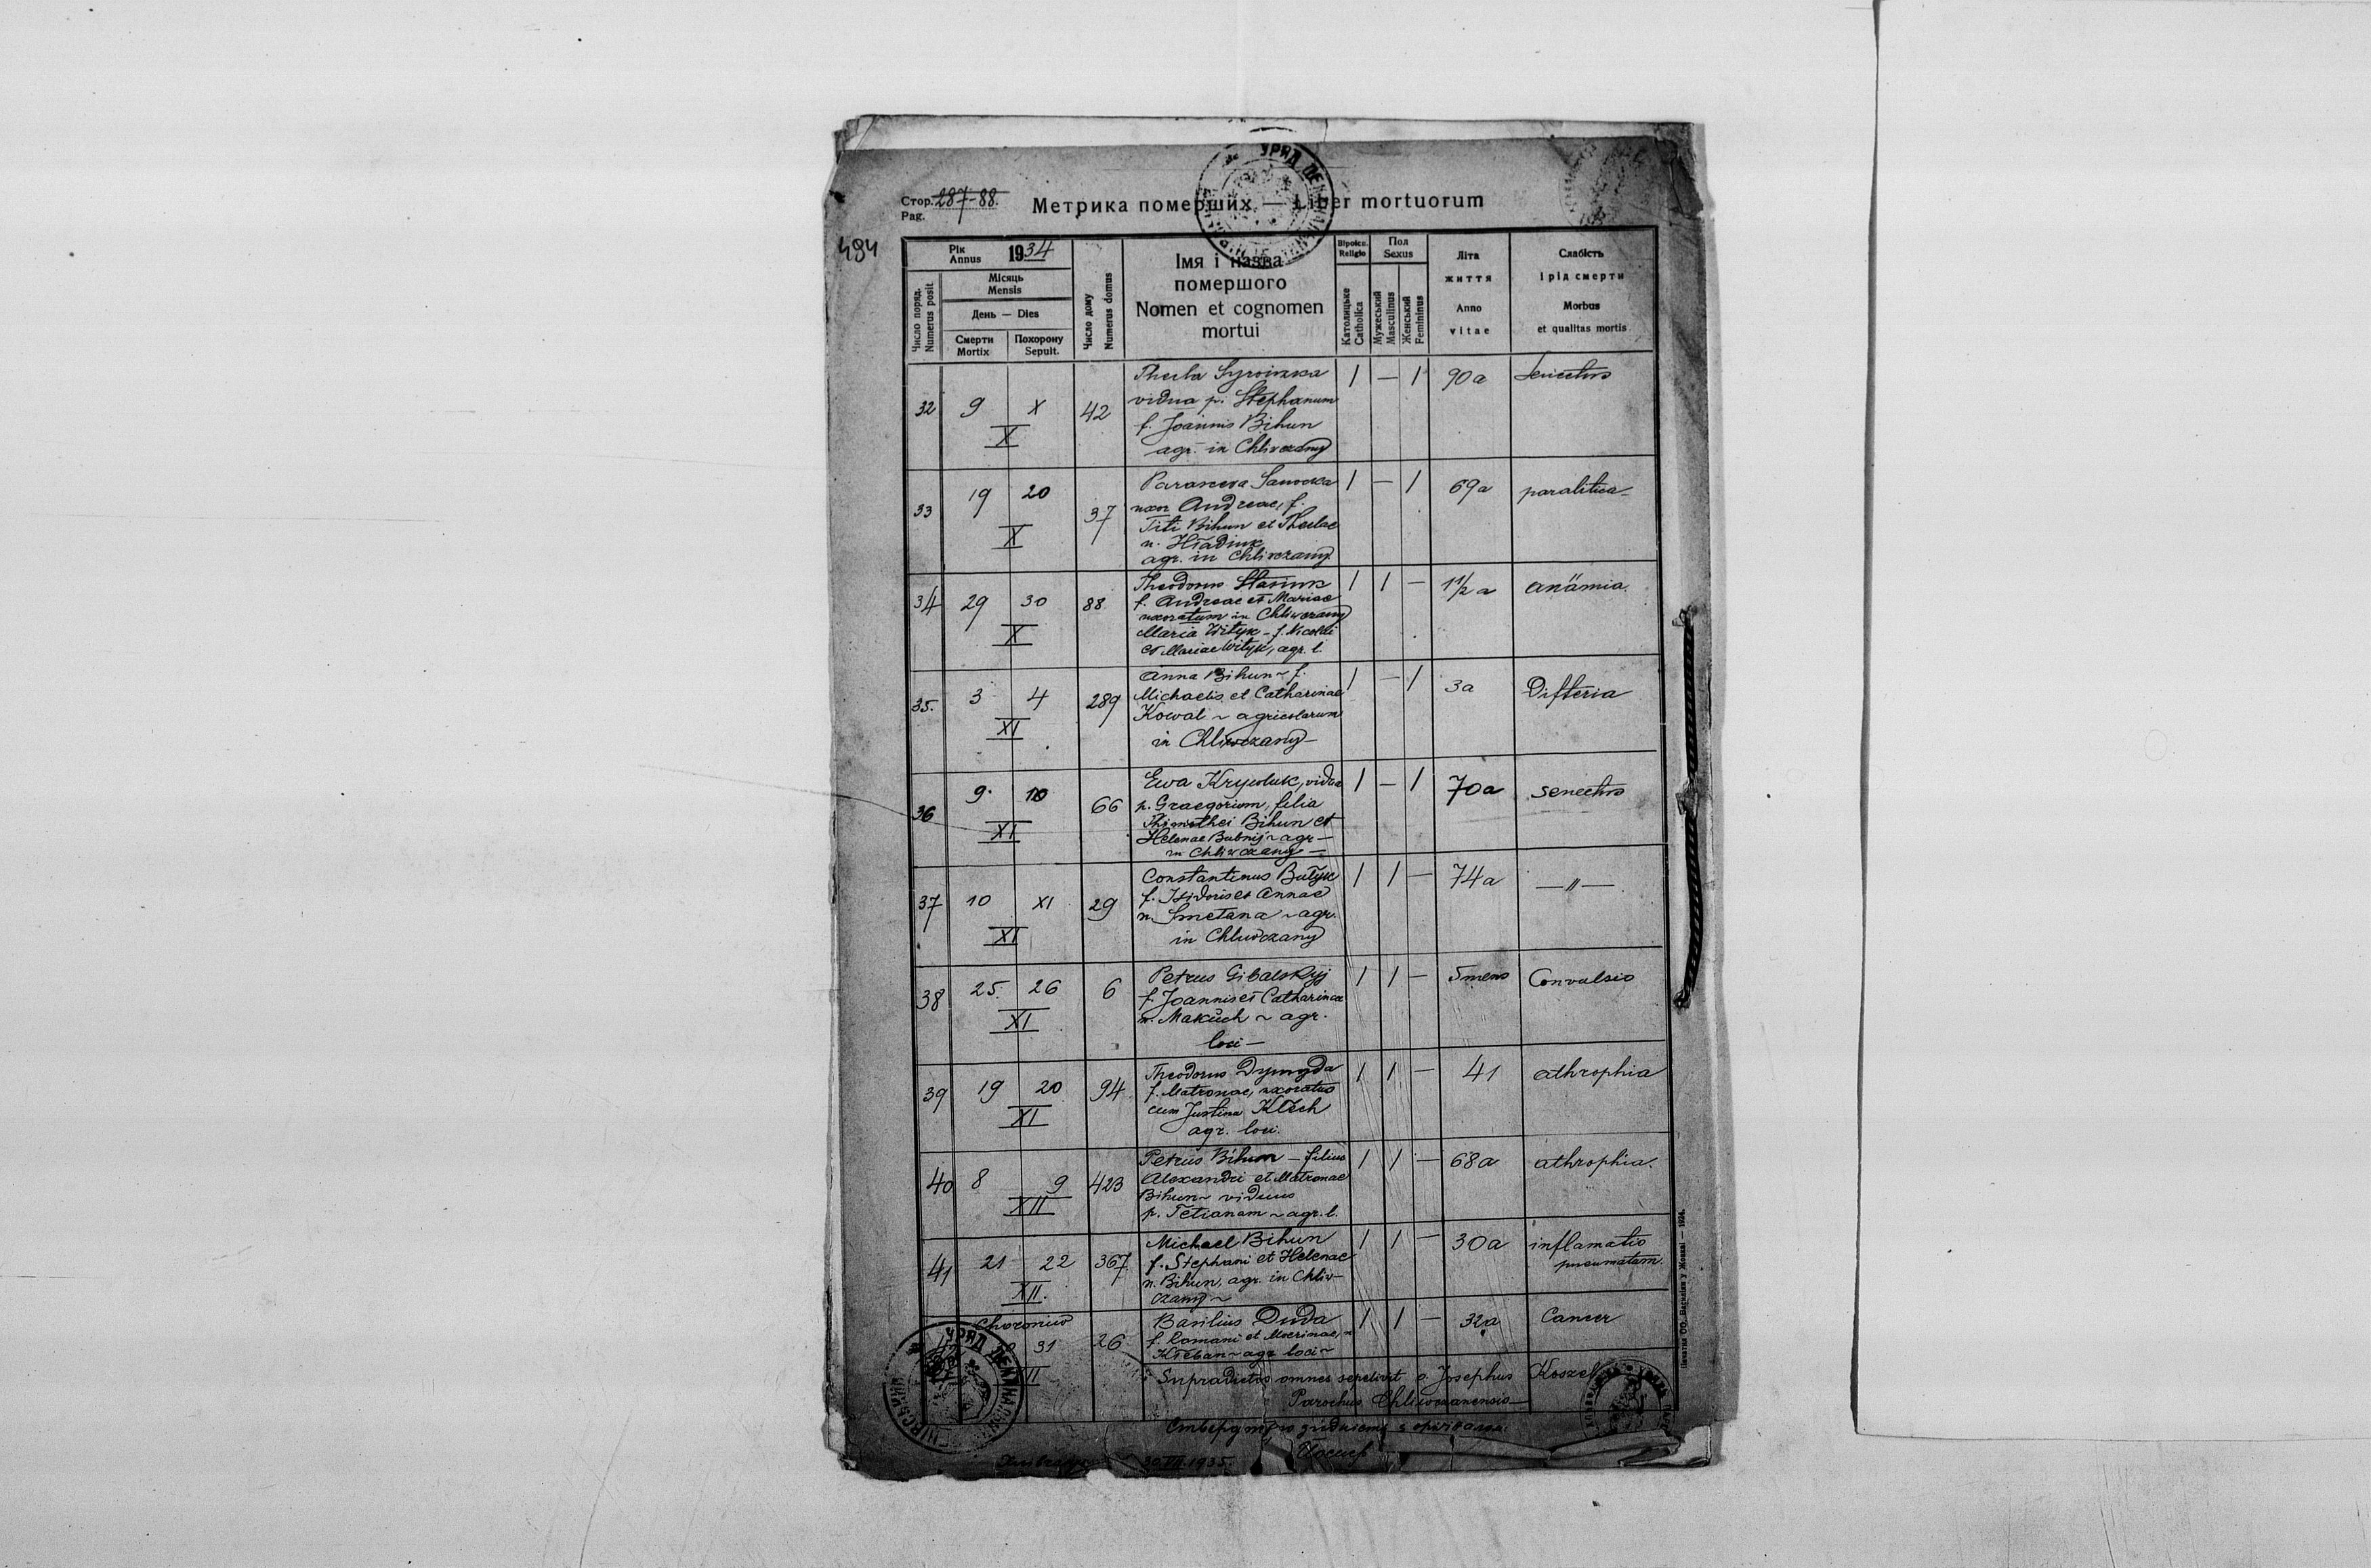 Стор. 287-88.
Pag.
Метрика померших — Liber mortuorum
494
Рік
Annus 1934
Місяць
Mensis
День — Dies
Число поряд.
Numerus posit
Смерти
Mortix
Похорону
Sepult.
Число дому
Numerus domus
Імя і назва
помершого
Nomen et cognomen
mortui
Віроісп.
Religio
Католицьке
Catholica
Пол
Sexus
Мужеський
Masculinus
Женський
Femininus
Літа
життя
Anno
vitae
Слабість
і рід смерти
Morbus
et qualitas mortis
32 9 X X 42
Thecla
vidua p. Stephanum
f. Joannis Bihun
agr. in Chliwczany
1 — 1 90a Senectus
33 19 20 X 37
Parasceva
uxor Andreae, f.
Titi Bihun et Theclae
n. Hładiuk
agr. in Chliwczany
1 — 1 69a paralitica
34 29 30 X 88
Theodorus Stasiuk
f. Andreae et Mariae
uxoratum in Chliwczany
Maria Wityk - f. Nicolai
et Mariae Wityk, agr. l.
1 1 — 1 1/2 a anämia.
35. 3 4 XI 289
Anna Bihun ~ f.
Michaelis et Catharinae
Kowal ~ agricolarum
in Chliwczany —
1 — 1 3a Difteria
36 9. 10 XI 66
Ewa Krywluk, vidua
p. Graegorium, filia
Thimothei Bihun et
Helenae Bubnij ~ agr —
in Chliwczany —
1 — 1 70a senectus
37 10 XI XI 29
Constantinus Batyk
f. Isidoris et Annae
n. Smetana ~ agr.
in Chliwczany
1 1 — 74a — " —
38 25. 26 XI 6
Petrus Gibalskyj
f. Joannis et Catharinae
n. Makuch ~ agr.
loci —
1 1 — 5 mens Convulsio
39 19 20 XI 94
Theodorus Dymyda
f. Matronae, uxoratus
cum Justina
agr. loci.
1 1 — 41 athrophia
40 8 9 XII 423
Petrus Bihun — filius
Alexandri et Matronae
Bihun ~ viduus
p. Tetianam ~ agr. l.
1 1 — 68a athrophia.
41 21 22 XII. 367
Michael Bihun
f. Stephani et Helenae
n. Bihun, agr. in Chliw-
czany ~
1 1 — 30a inflamatio
pneumatam.
31 26
Basilius Duda
f. Romani et Macrinae, n
Kłeban ~ agr loci ~
1 1 — 32a Cancer
Supradictos omnes sepelivit o. Josephus Koszel
Parochus Chliwczanensis —
30 VII 1935.
УРЯД ДЕКАНАЛЬНИЙ